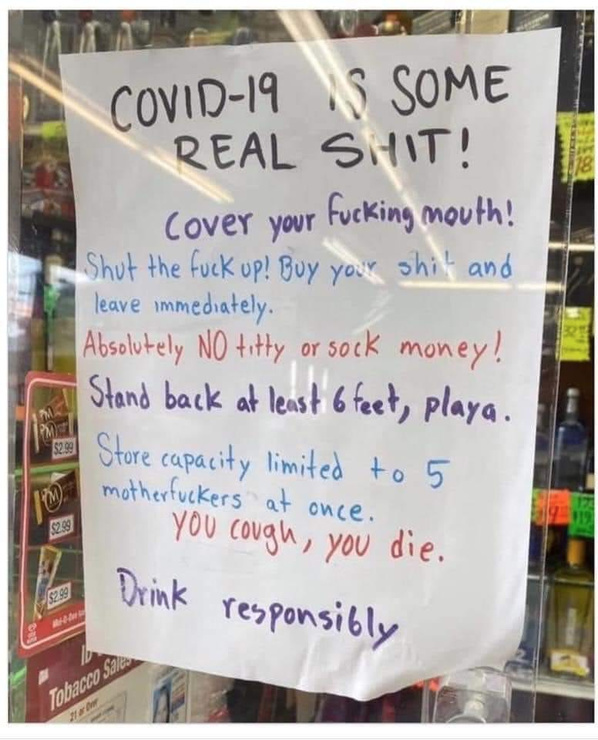 COVID-19 IS SOME
REAL SHIT!
Cover your fucking mouth!
Shut the fuck up! Buy your shit and
leave immediately.
Absolutely NO titty or sock money!
Stand back at least 6 feet, playa.
Store capacity limited to 5
motherfuckers at once.
YOU cough, you die.
Drink responsibly
$2.99
$2.99
$2.99
Tobacco Sales
21 or Over